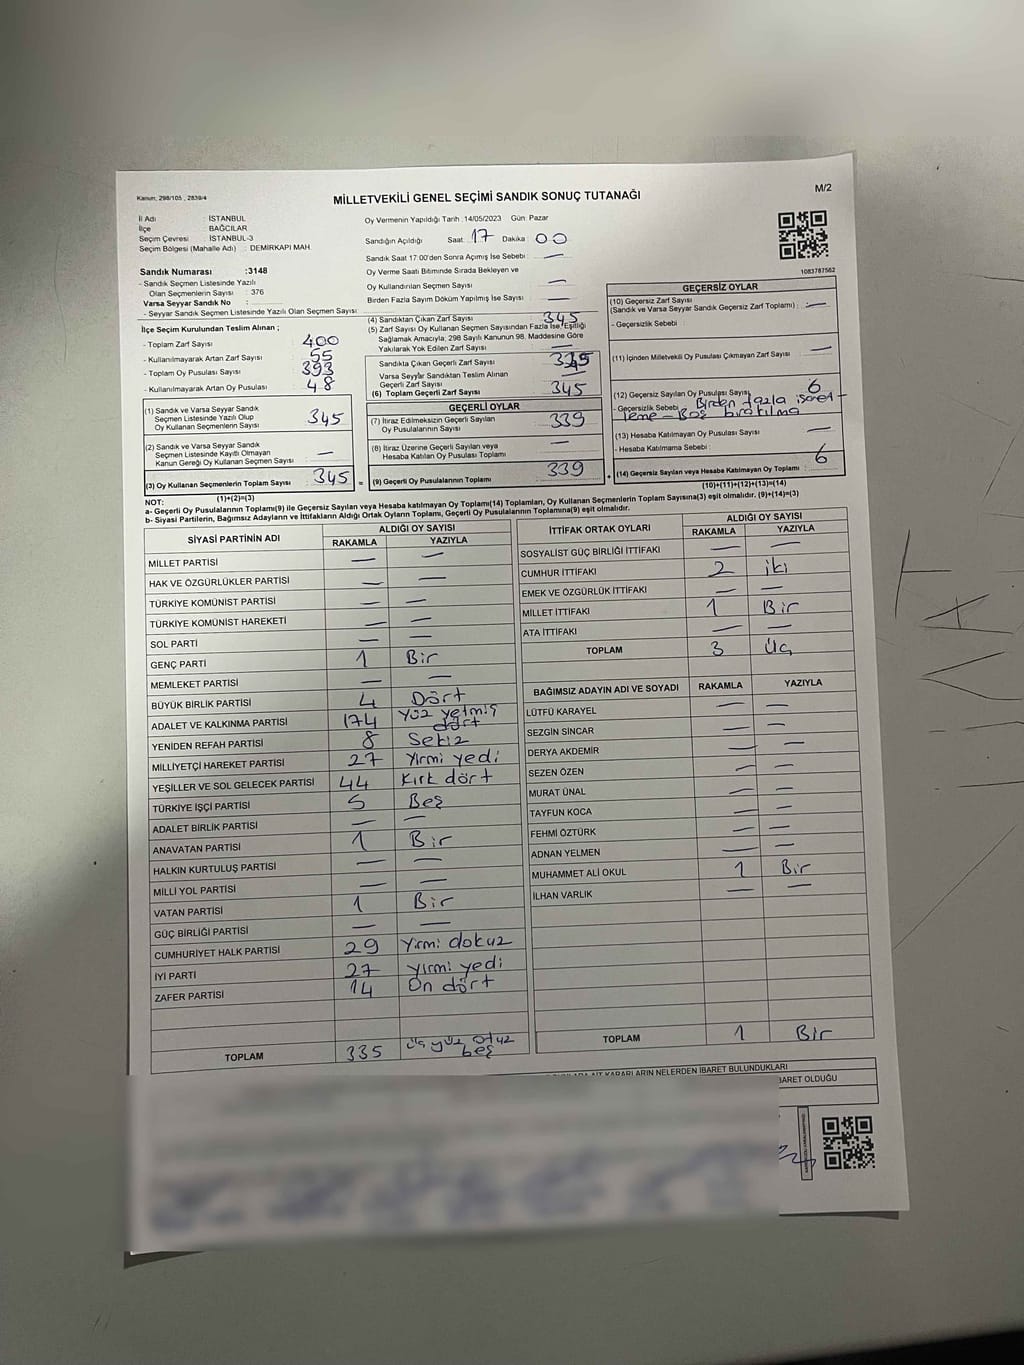 Kanun; 298/105 , 2839/4
MİLLETVEKİLİ GENEL SEÇİMİ SANDIK SONUÇ TUTANAĞI
M/2
İl Adı : İSTANBUL
İlçe : BAĞCILAR
Seçim Çevresi : İSTANBUL-3
Seçim Bölgesi (Mahalle Adı) : DEMİRKAPI MAH.
Sandık Numarası :3148
- Sandık Seçmen Listesinde Yazılı
Olan Seçmenlerin Sayısı : 376
Varsa Seyyar Sandık No :
- Seyyar Sandık Seçmen Listesinde Yazılı Olan Seçmen Sayısı
Oy Vermenin Yapıldığı Tarih :14/05/2023 Gün: Pazar
Sandığın Açıldığı Saat: 17 Dakika: 00
Sandık Saat 17:00'den Sonra Açılmış İse Sebebi : —
Oy Verme Saati Bitiminde Sırada Bekleyen ve
Oy Kullandırılan Seçmen Sayısı : —
Birden Fazla Sayım Döküm Yapılmış İse Sayısı : —
1083787562
İlçe Seçim Kurulundan Teslim Alınan ;
- Toplam Zarf Sayısı : 400
- Kullanılmayarak Artan Zarf Sayısı : 55
- Toplam Oy Pusulası Sayısı : 393
- Kullanılmayarak Artan Oy Pusulası : 48
(1) Sandık ve Varsa Seyyar Sandık
Seçmen Listesinde Yazılı Olup
Oy Kullanan Seçmenlerin Sayısı 345
(2) Sandık ve Varsa Seyyar Sandık
Seçmen Listesinde Kayıtlı Olmayan
Kanun Gereği Oy Kullanan Seçmen Sayısı —
(3) Oy Kullanan Seçmenlerin Toplam Sayısı 345 =
(1)+(2)=(3)
(4) Sandıktan Çıkan Zarf Sayısı 345
(5) Zarf Sayısı Oy Kullanan Seçmen Sayısından Fazla İse, Eşitliği
Sağlamak Amacıyla; 298 Sayılı Kanunun 98. Maddesine Göre
Yakılarak Yok Edilen Zarf Sayısı : —
Sandıkta Çıkan Geçerli Zarf Sayısı 345
Varsa Seyyar Sandıktan Teslim Alınan
Geçerli Zarf Sayısı —
(6) Toplam Geçerli Zarf Sayısı 345
GEÇERLİ OYLAR
(7) İtiraz Edilmeksizin Geçerli Sayılan
Oy Pusulalarının Sayısı: 339
(8) İtiraz Üzerine Geçerli Sayılan veya
Hesaba Katılan Oy Pusulası Toplamı —
(9) Geçerli Oy Pusulalarının Toplamı 339 +
GEÇERSİZ OYLAR
(10) Geçersiz Zarf Sayısı
(Sandık ve Varsa Seyyar Sandık Geçersiz Zarf Toplamı) : —
- Geçersizlik Sebebi :
(11) İçinden Milletvekili Oy Pusulası Çıkmayan Zarf Sayısı —
(12) Geçersiz Sayılan Oy Pusulası Sayısı 6
- Geçersizlik Sebebi: Birden fazla işaret-
leme - Boş bırakılma
(13) Hesaba Katılmayan Oy Pusulası Sayısı —
- Hesaba Katılmama Sebebi :
(14) Geçersiz Sayılan veya Hesaba Katılmayan Oy Toplamı : 6
(10)+(11)+(12)+(13)=(14)
NOT:
a- Geçerli Oy Pusulalarının Toplamı(9) ile Geçersiz Sayılan veya Hesaba katılmayan Oy Toplamı(14) Toplamları, Oy Kullanan Seçmenlerin Toplam Sayısına(3) eşit olmalıdır. (9)+(14)=(3)
b- Siyasi Partilerin, Bağımsız Adayların ve İttifakların Aldığı Ortak Oyların Toplamı, Geçerli Oy Pusulalarının Toplamına(9) eşit olmalıdır.
SİYASİ PARTİNİN ADI ALDIĞI OY SAYISI
RAKAMLA YAZIYLA
MİLLET PARTİSİ — —
HAK VE ÖZGÜRLÜKLER PARTİSİ — —
TÜRKİYE KOMÜNİST PARTİSİ — —
TÜRKİYE KOMÜNİST HAREKETİ — —
SOL PARTİ — —
GENÇ PARTİ 1 Bir
MEMLEKET PARTİSİ — —
BÜYÜK BİRLİK PARTİSİ 4 Dört
ADALET VE KALKINMA PARTİSİ 174 Yüz yetmiş dört
YENİDEN REFAH PARTİSİ 8 Sekiz
MİLLİYETÇİ HAREKET PARTİSİ 27 Yirmi yedi
YEŞİLLER VE SOL GELECEK PARTİSİ 44 Kırk dört
TÜRKİYE İŞÇİ PARTİSİ 5 Beş
ADALET BİRLİK PARTİSİ — —
ANAVATAN PARTİSİ 1 Bir
HALKIN KURTULUŞ PARTİSİ — —
MİLLİ YOL PARTİSİ — —
VATAN PARTİSİ 1 Bir
GÜÇ BİRLİĞİ PARTİSİ — —
CUMHURİYET HALK PARTİSİ 29 Yirmi dokuz
İYİ PARTİ 27 Yirmi yedi
ZAFER PARTİSİ 14 On dört
TOPLAM 335 Üç yüz otuz beş
İTTİFAK ORTAK OYLARI ALDIĞI OY SAYISI
RAKAMLA YAZIYLA
SOSYALİST GÜÇ BİRLİĞİ İTTİFAKI — —
CUMHUR İTTİFAKI 2 iki
EMEK VE ÖZGÜRLÜK İTTİFAKI — —
MİLLET İTTİFAKI 1 Bir
ATA İTTİFAKI — —
TOPLAM 3 Üç
BAĞIMSIZ ADAYIN ADI VE SOYADI RAKAMLA YAZIYLA
LÜTFÜ KARAYEL — —
SEZGİN SİNCAR — —
DERYA AKDEMİR — —
SEZEN ÖZEN — —
MURAT ÜNAL — —
TAYFUN KOCA — —
FEHMİ ÖZTÜRK — —
ADNAN YELMEN — —
MUHAMMET ALİ OKUL 1 Bir
İLHAN VARLIK — —
TOPLAM 1 Bir
KARARLARIN NELERDEN İBARET BULUNDUKLARI
İBARET OLDUĞU